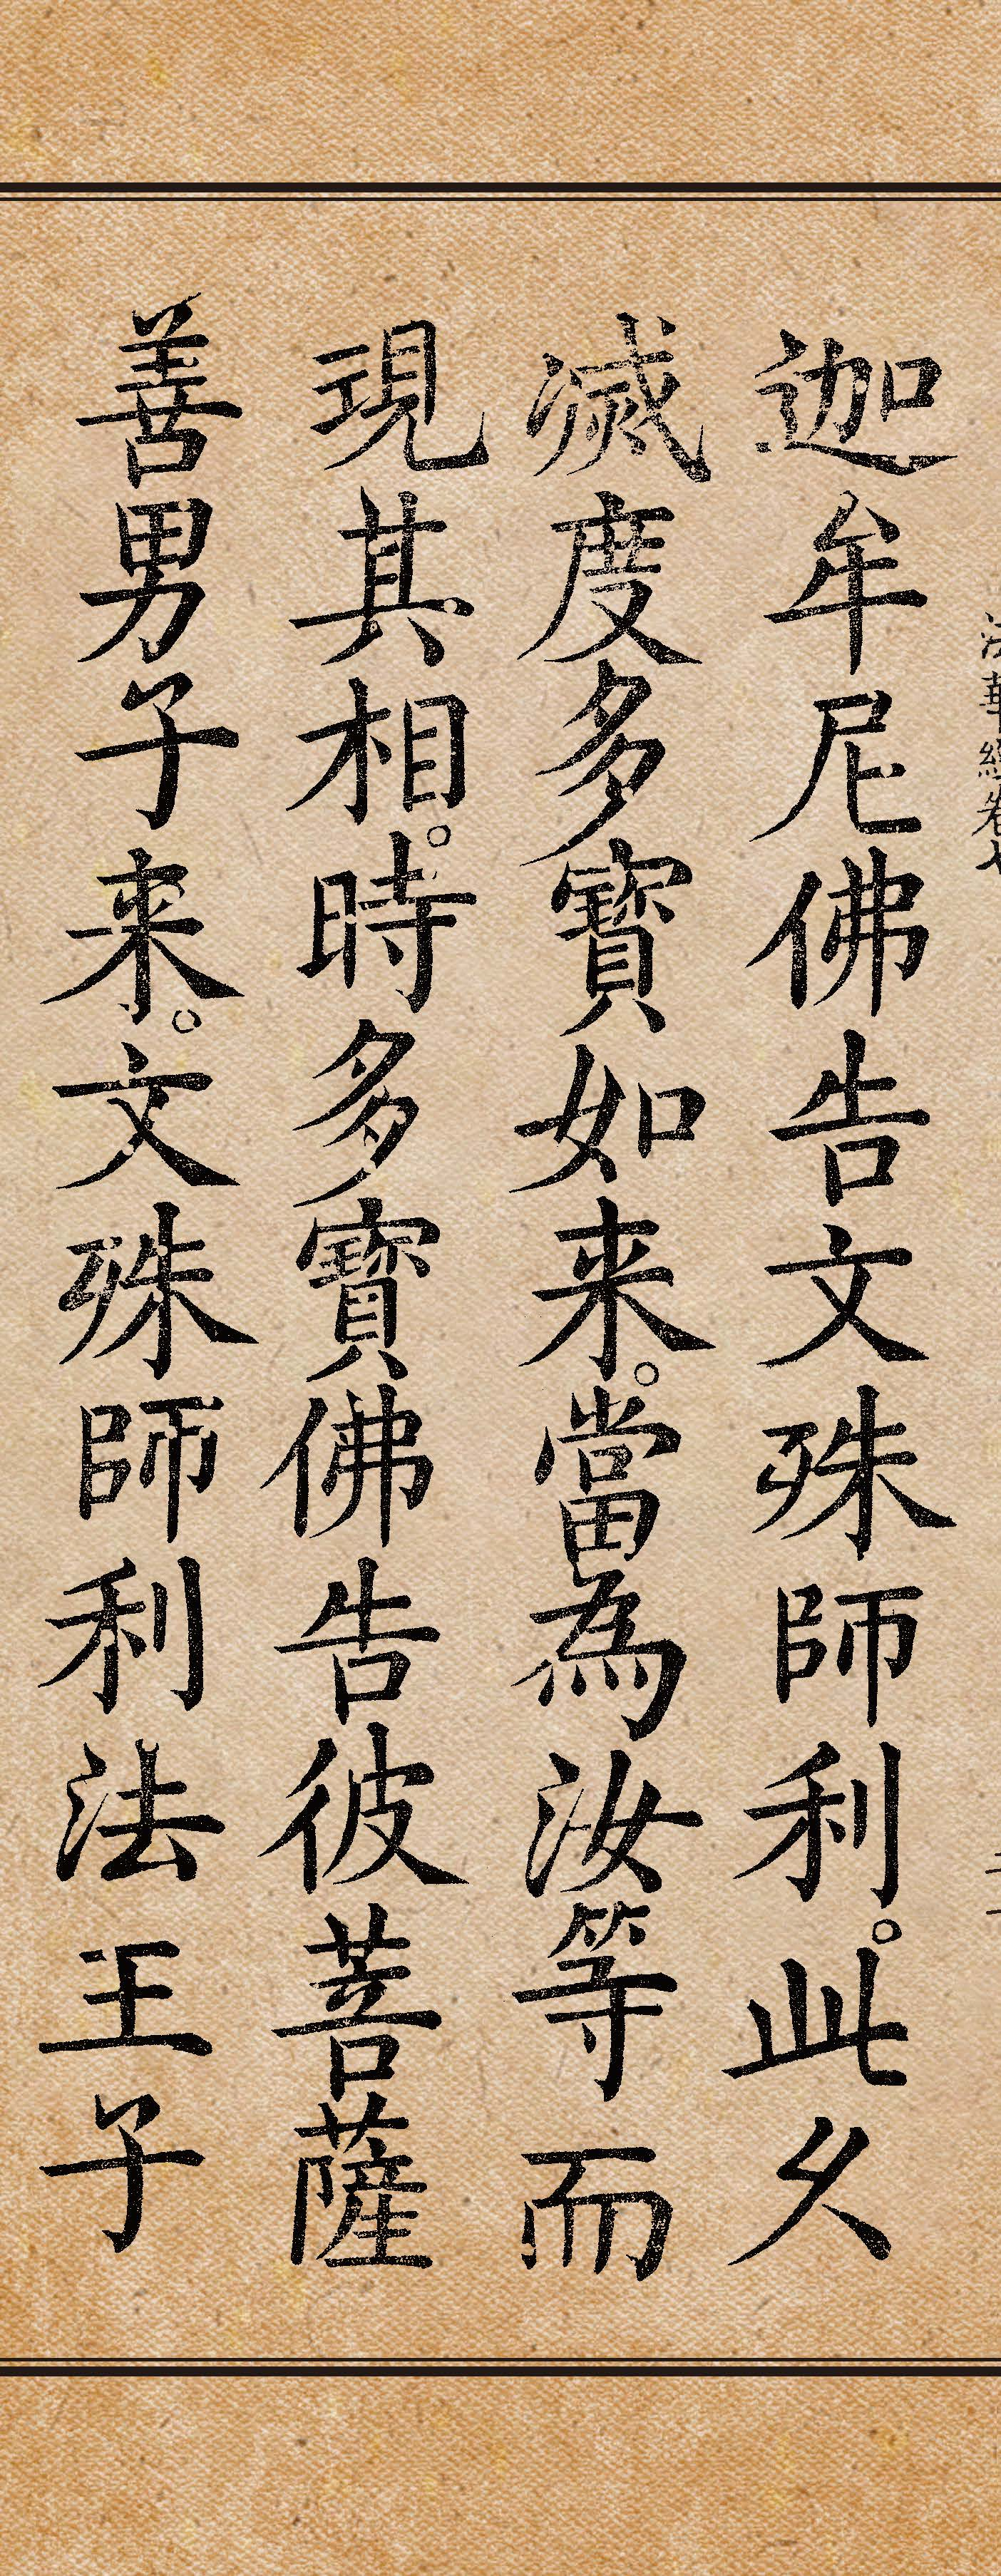 法華經卷七
迦牟尼佛告文殊師利。此久
滅度多寶如来。當為汝等而
現其相。時多寶佛告彼菩薩
善男子来。文殊師利法王子